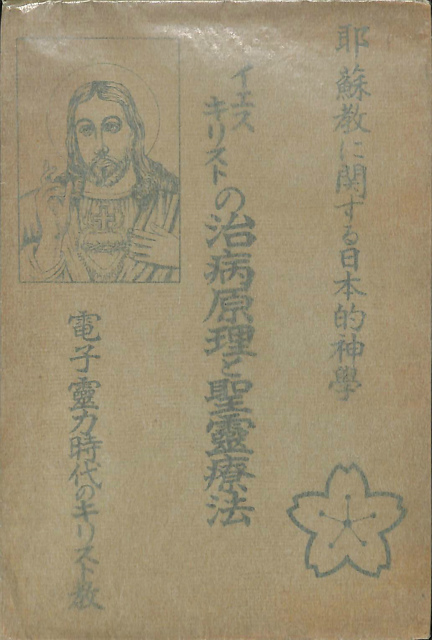 耶蘇教に関する日本的神學
イエス
キリストの治病原理と聖靈療法
電子靈力時代のキリスト教